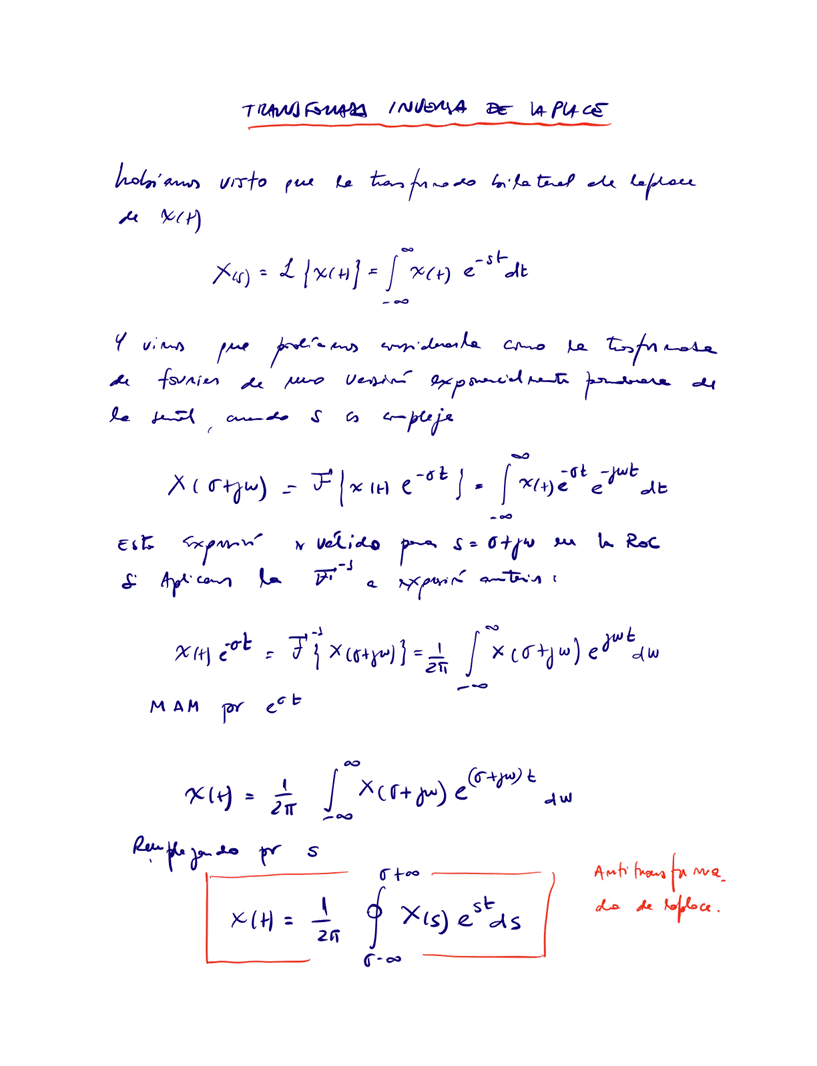 TRANSFORMADA INVERSA DE LAPLACE
habíamos visto que la trasformada bilateral de laplace
de x(t)
X(s) = ℒ{x(t)} = ∫_{-∞}^{∞} x(t) e^{-st} dt
Y vimos que podíamos considerarla como la trasformada
de fourier de una versión exponencialmente ponderada de
la señal, cuando s es compleja
X(σ+jω) = ℱ{x(t) e^{-σt}} = ∫_{-∞}^{∞} x(t) e^{-σt} e^{-jωt} dt
Esta expresión es válido para s = σ+jω en la RoC
Si Aplicamos la ℱ^{-1} a expresión anterior:
x(t) e^{-σt} = ℱ^{-1}{X(σ+jω)} = 1/2π ∫_{-∞}^{∞} X(σ+jω) e^{jωt} dω
MAM por e^{σt}
x(t) = 1/2π ∫_{-∞}^{∞} X(σ+jω) e^{(σ+jω)t} dω
Remplazando por s
x(t) = 1/2π ∮_{σ-∞}^{σ+∞} X(s) e^{st} ds
Antitransforma-
da de laplace.